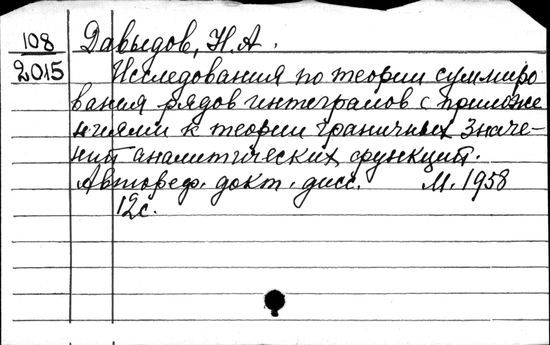 108 Давыдов, Н.А.
2015 Исследования по теории суммиро
вания рядов интегралов с приложе
ниями к теории граничных значе-
ний аналитических функций.
Автореф. докт. дисс. М. 1958
12с.